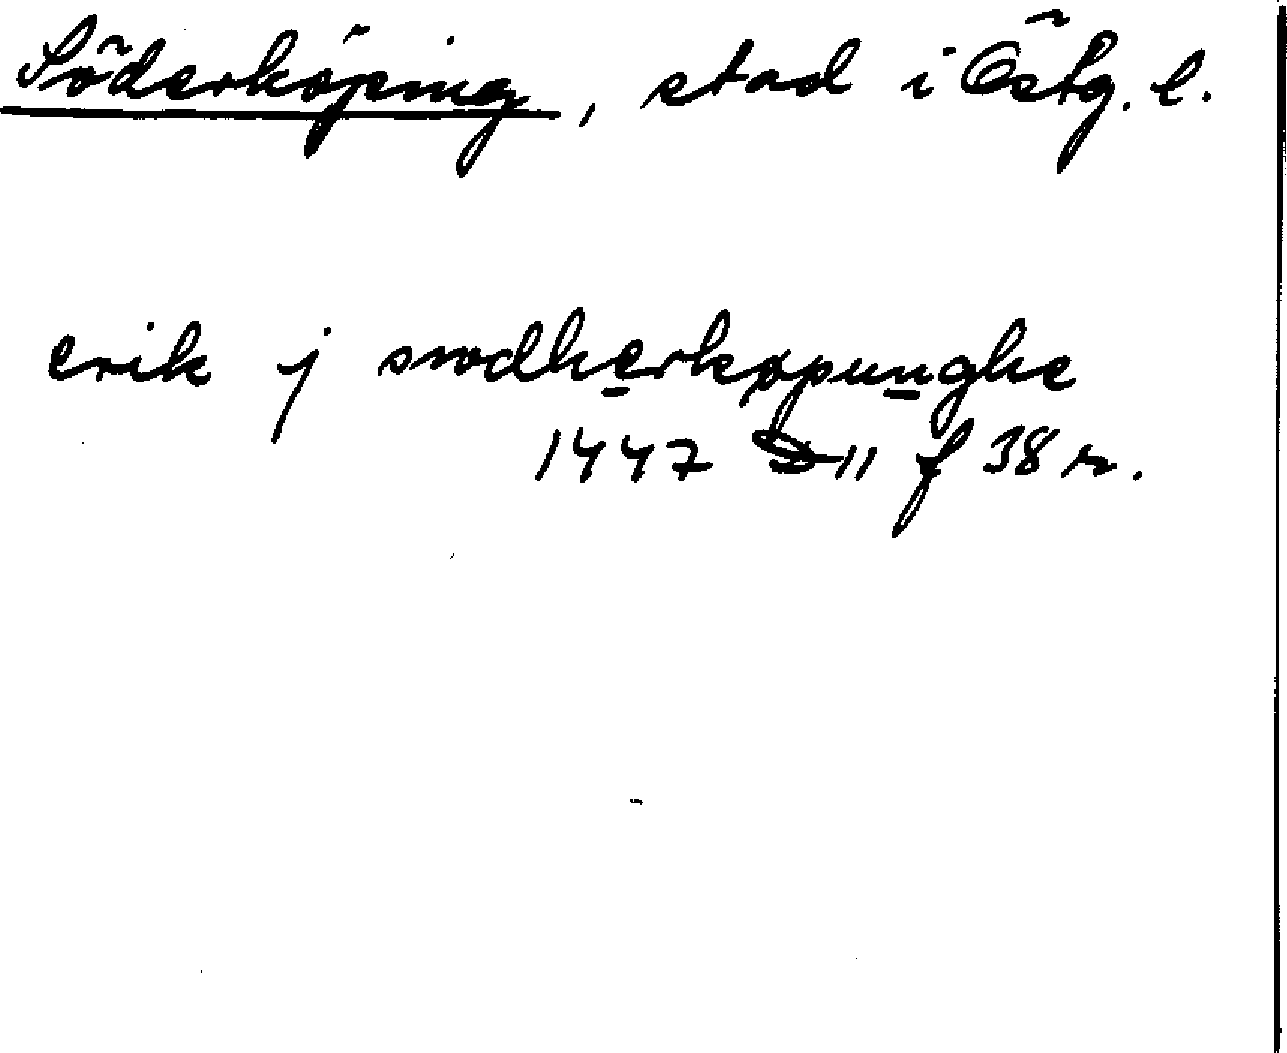 Söderköping, stad i Östg. l.
erik j swdherkøpunghe
1447 D 11 f 38 r.